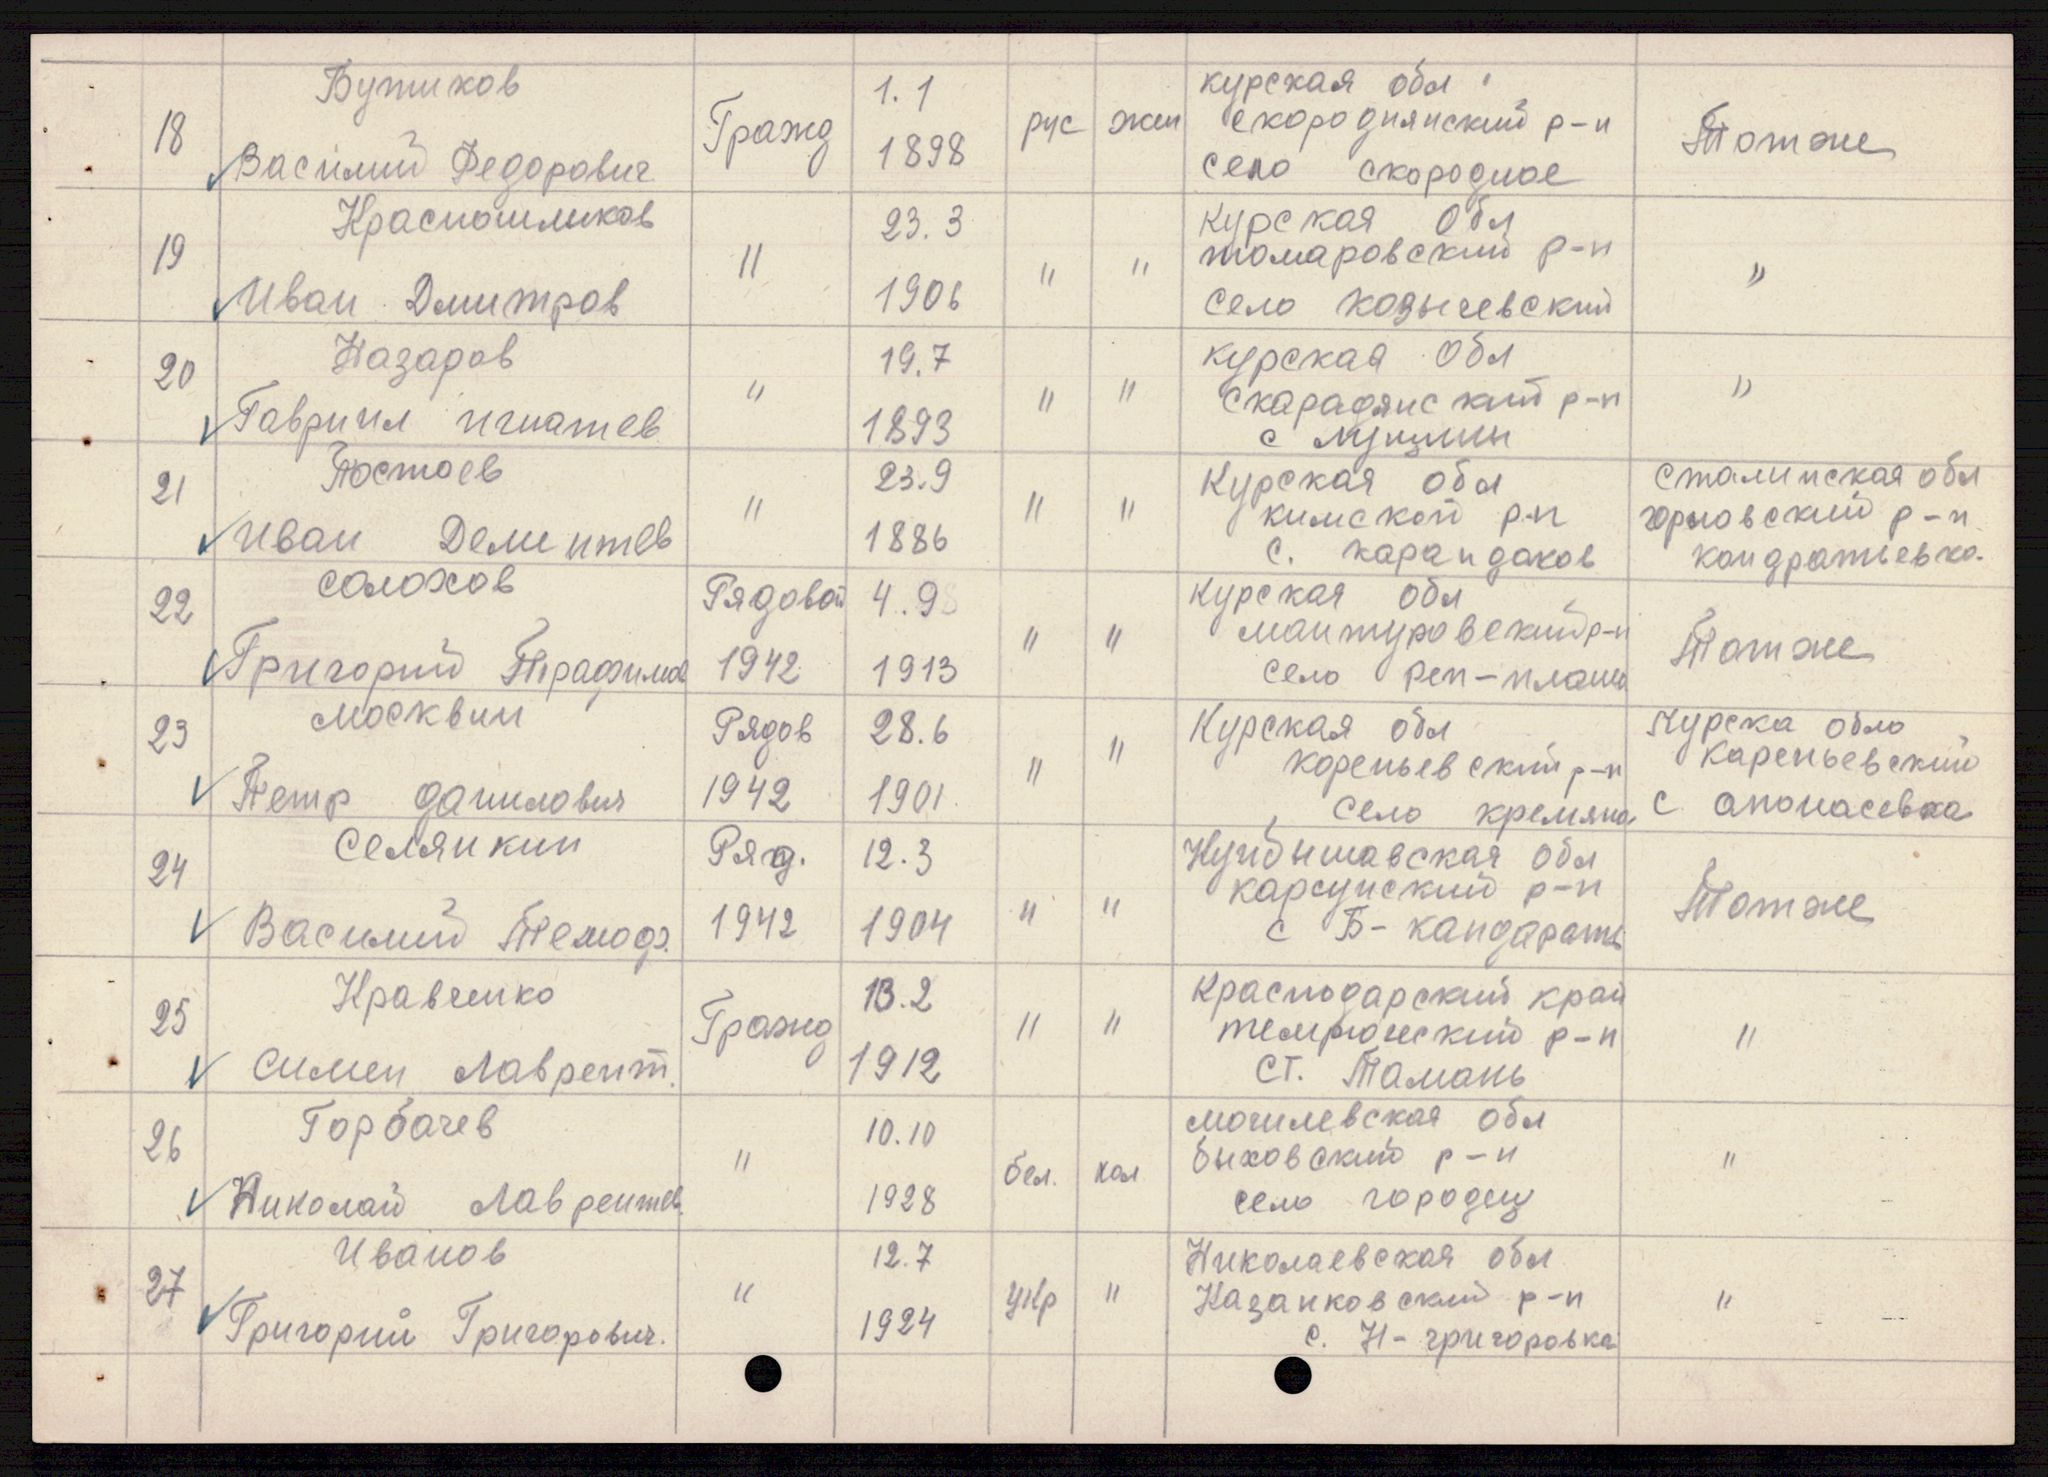 18 Бутиков Василий Федорович Гражд 1.1 1898 рус жен курская обл скороднянский р-н село скородное Тотже
19 Красношлыков Иван Дмитров " 23.3 1906 " " Курская Обл томаровский р-н село козычевский "
20 Назаров Гавриил игнатев " 19.7 1893 " " курская Обл скараднский р-н с "
21 Постоев Иван Дементев " 23.9 1886 " " Курская обл кимской р-н с. карандаков Сталинская обл горловский р-н кондратьевка.
22 солохов Григорий Трафимов Рядовой 1942 4.9 1913 " " Курская обл мантуровский р-н село реп-плата Тотже
23 москвин Петр данилович Рядов 1942 28.6 1901 " " Курская обл кореньевский р-н село кремяное Курска обло кареньевский с апонасевка
24 Селянкин Василий Темоф. Ряд. 1942 12.3 1904 " " Куйбышавская Обл карсунский р-н с Б-кандарать Тотже
25 Кравченко Симен Лаврент. Гражд 13.2 1912 " " Краснодарский край темрюкский р-н ст. Тамань "
26 Горбачев Николай Лаврентев. " 10.10 1928 бел. хол могилевская обл быховский р-н село городец "
27 Иванов Григорий Григорович. " 12.7 1924 укр " Николаевская обл Казанковский р-н с. Н-григоровка "